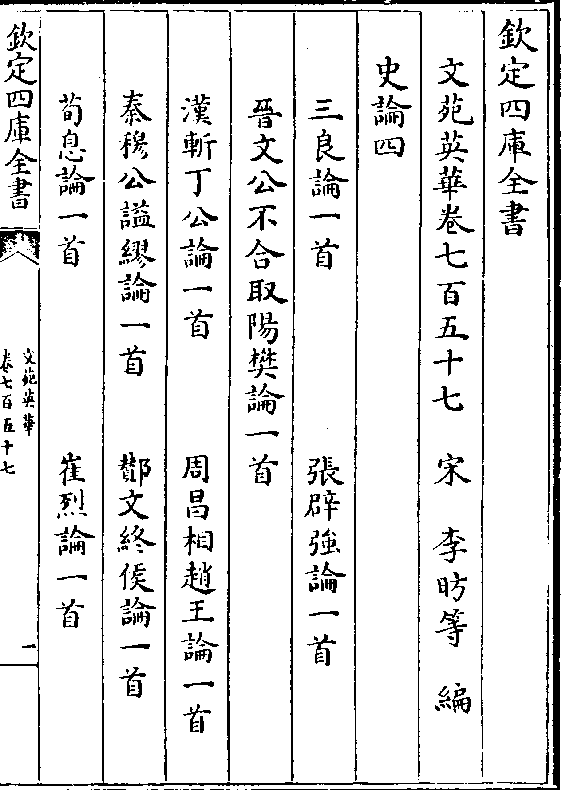 欽定四庫全書
文苑英華卷七百五十七　宋　李昉等　編
史論四
三良論一首　張辟強論一首
晉文公不合取陽樊論一首
漢斬丁公論一首　周昌相趙王論一首
秦穆公謚繆論一首　酇文終侯論一首
荀息論一首　崔烈論一首
欽定四庫全書
文苑英華
卷七百五十七
一